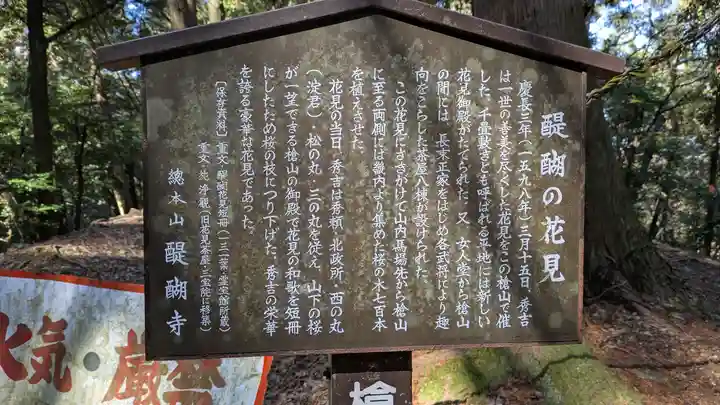 醍醐の花見
慶長三年（一五九八年）三月十五日、秀吉
は一世の善美を尽くした花見をこの槍山で催
した。千畳敷きとも呼ばれる平地には新しい
花見御殿がたてられた。又、女人堂から槍山
の間には、長束正家をはじめ各武将により趣
向をこらした茶屋八棟が設けられた。
この花見にさきがけて山内馬場先から槍山
に至る両側には畿内より集めた桜の木七百本
を植えさせた。
花見の当日、秀吉は秀頼・北政所・西の丸
（淀君）・松の丸、三の丸を従え、山下の桜
が一望できる槍山の御殿で花見の和歌を短冊
にしたため桜の枝につり下げた。秀吉の栄華
を誇る豪華な花見であった。
〔保存資料〕重文・醍醐花見短冊（一三一葉・霊宝館所蔵）
重文・純浄観（旧花見茶屋・三宝院に移築）
總本山 醍醐寺
槍
火気・厳禁